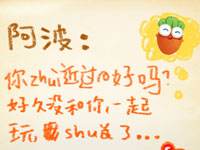 阿波：
你zhui近过的好吗？
好久没和你一起
玩shua了...